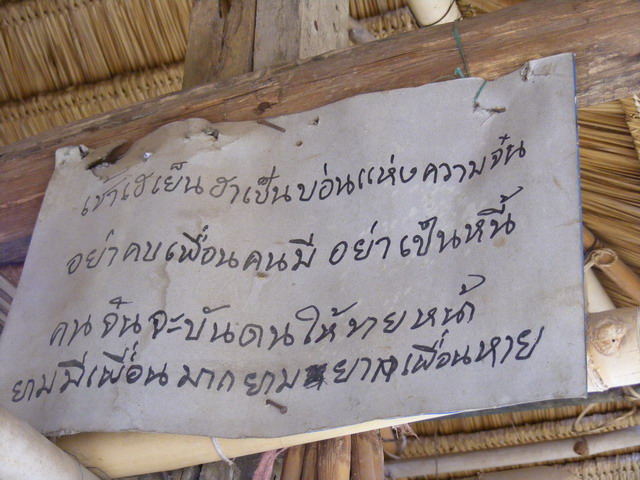 เช้าเฮเย็นฮาเป็นบ่อนแห่งความจ๋น
อย่าคบเพื่อนคนมี อย่าเป็นหนี้
คนจ๋นจะบันดนให้ขายหน้า
ยามมีเพื่อนมากยามยากเพื่อนหาย